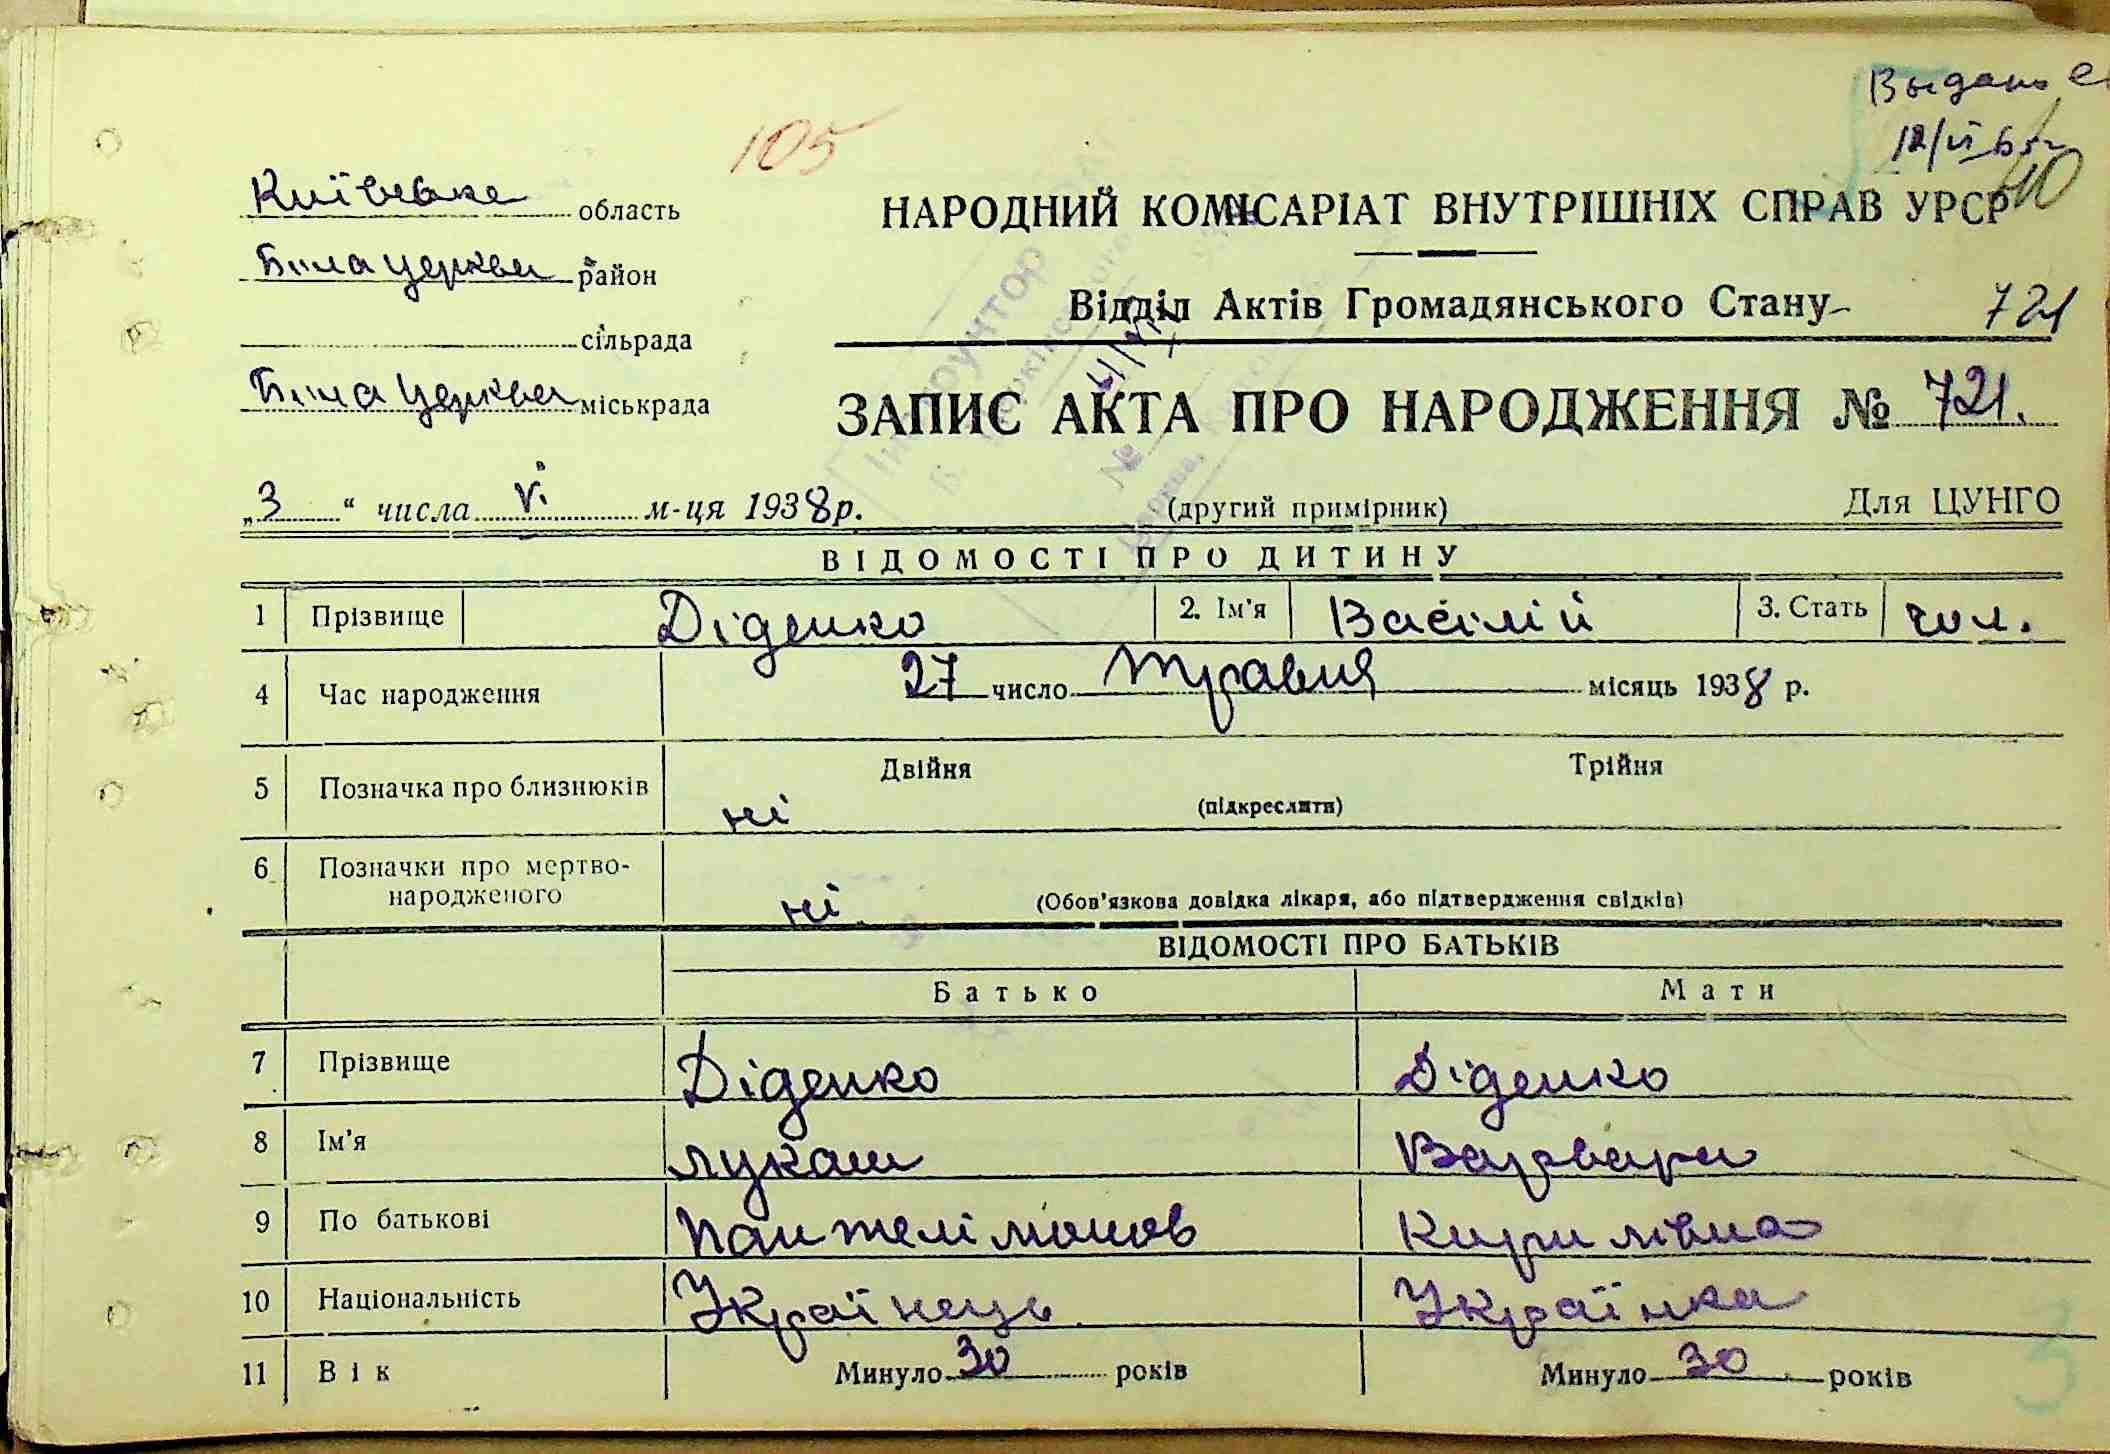 Выдано
12/VI
105
40
Київська область
НАРОДНИЙ КОМІСАРІАТ ВНУТРІШНІХ СПРАВ УРСР
Біла Церква район
Відділ Актів Громадянського Стану 721
сільрада
Біла Церква міськрада
ЗАПИС АКТА ПРО НАРОДЖЕННЯ № 721.
„3“ числа VI м-ця 1938 р. (другий примірник) Для ЦУНГО
ВІДОМОСТІ ПРО ДИТИНУ
1 Прізвище Діденко 2. Ім'я Васілій 3. Стать чол.
4 Час народження 27 число Травня місяць 1938 р.
5 Позначка про близнюків ні Двійня (підкреслити) Трійня
6 Позначки про мертво-
народженого ні (Обов'язкова довідка лікаря, або підтвердження свідків)
ВІДОМОСТІ ПРО БАТЬКІВ
Батько Мати
7 Прізвище Діденко Діденко
8 Ім'я Лукаш Варвара
9 По батькові Пантелімонов Кирилівна
10 Національність Українець Українка
11 Вік Минуло 30 років Минуло 30 років
3